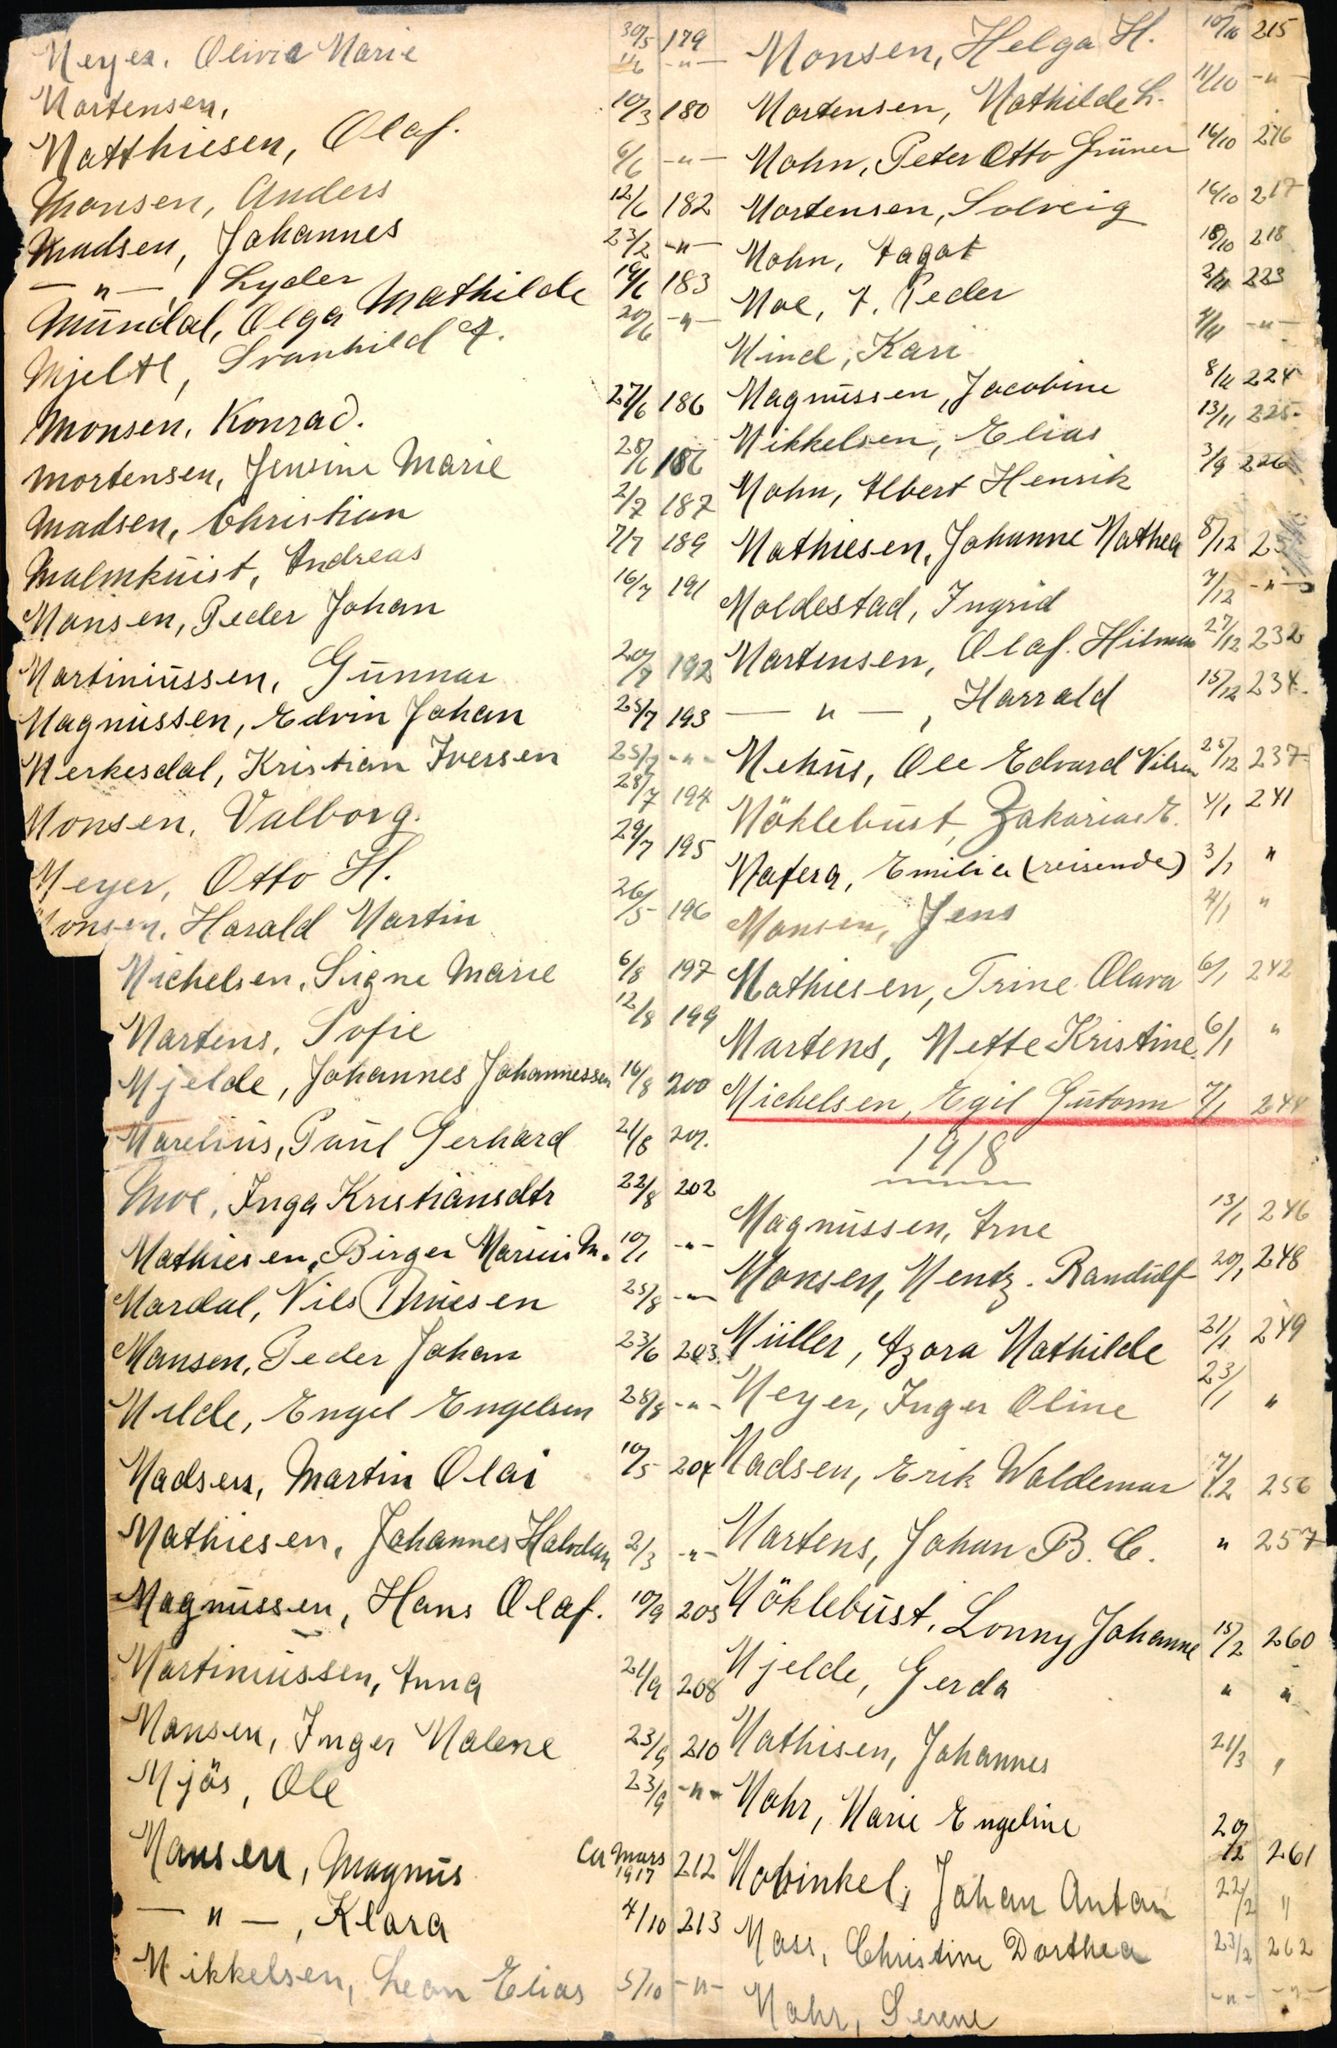 Meyer, Olivia Marie 30/5 179
Mortensen, 1/6 -"-
Matthiesen, Olaf. 10/3 180
Monsen, Anders 6/6 -"-
Madsen, Johannes 12/6 182
-"-, Lyder 23/2 -"-
Mundal, Olga Mathilde 19/6 183
Mjelte, Svanhild A. 20/6 -"-
Monsen, Konrad. 27/6 186
Mortensen, Jensine Marie 28/6 186
Madsen, Christian 2/7 187
Malmkuist, Andreas 7/7 189
Monsen, Peder Johan 16/7 191
Martiniussen, Gunnar 20/7 192
Magnussen, Edvin Johan 25/7 193
Merkesdal, Kristian Iversen 25/7 -"-
Monsen, Valborg. 28/7 194
Meyer, Otto H. 29/7 195
Monsen, Harald Martin 26/5 196
Michelsen, Signe Marie 6/8 197
Martens, Sofie 12/8 199
Mjelde, Johannes Johannessen 16/8 200
Marelius, Paul Gerhard 21/8 201.
Moe, Inga Kristiansdtr 22/8 202
Mathiesen, Birger Marius M. 10/1 -"-
Mardal, Nils Thuesen 25/8 -"-
Mansen, Peder Johan 23/6 203.
Milde, Engel Engelsen 28/8 -"-
Madsen, Martin Olai 10/5 204
Mathiesen, Johannes Halvdan 2/3 -"-
Magnussen, Hans Olaf. 10/9 205
Martiniussen, Anna 21/9 208
Monsen, Inger Malene 23/9 210
Mjös, Ole 23/9 -"-
Mansen, Magnus Ca Mars 1917 212
-"-, Klara 4/10 213
Mikkelsen, Leon Elias 5/10 -"-
Monsen, Helga H. 10/10 215
Mortensen, Mathilde L. 11/10 -"-
Mohn, Peter Otto Grüner 16/10 216
Mortensen, Solveig 16/10 217
Mohn, Aagot 18/10 218
Moe, A. Peder 2/11 223
Mind, Kari 4/11 -"-
Magnussen, Jacobine 8/11 224
Mikkelsen, Elias 13/11 225
Mohn, Albert Henrik 3/9 226
Mathiesen, Johanne Mathea 8/12
Moldestad, Ingrid 7/12 -"-
Martensen, Olaf. Hilmar 27/12 232
-"-, Harrald 15/12 234.
Mehus, Ole Edvard Nilsen 25/12 237
Möklebust, Zakarias E. 4/1 241
Mafera, Emilie (reisende) 3/1 "
Monsen, Jens 4/1 "
Mathiesen, Trine Olava 6/1 242
Martens, Mette Kristine. 6/1 "
Michelsen, Egil Gutorm 7/1 244
1918
Magnussen, Arne 13/1 246
Monsen, Mentz. Randulf 20/1 248
Müller, Azora Mathilde 21/1 249
Meyer, Inger Oline 23/1 "
Madsen, Erik Waldemar 7/2 256
Martens, Johan B. C. " 257
Möklebust, Lonny Johanne 15/2 260
Mjelde, Gerda " "
Mathisen, Johannes 21/3 "
Mohr, Marie Engeline 20/12 261
Mobinkel, Johan Antan 22/2 "
Mass, Christine Dorthea 23/2 262
Mohr, Serene -"- -"-